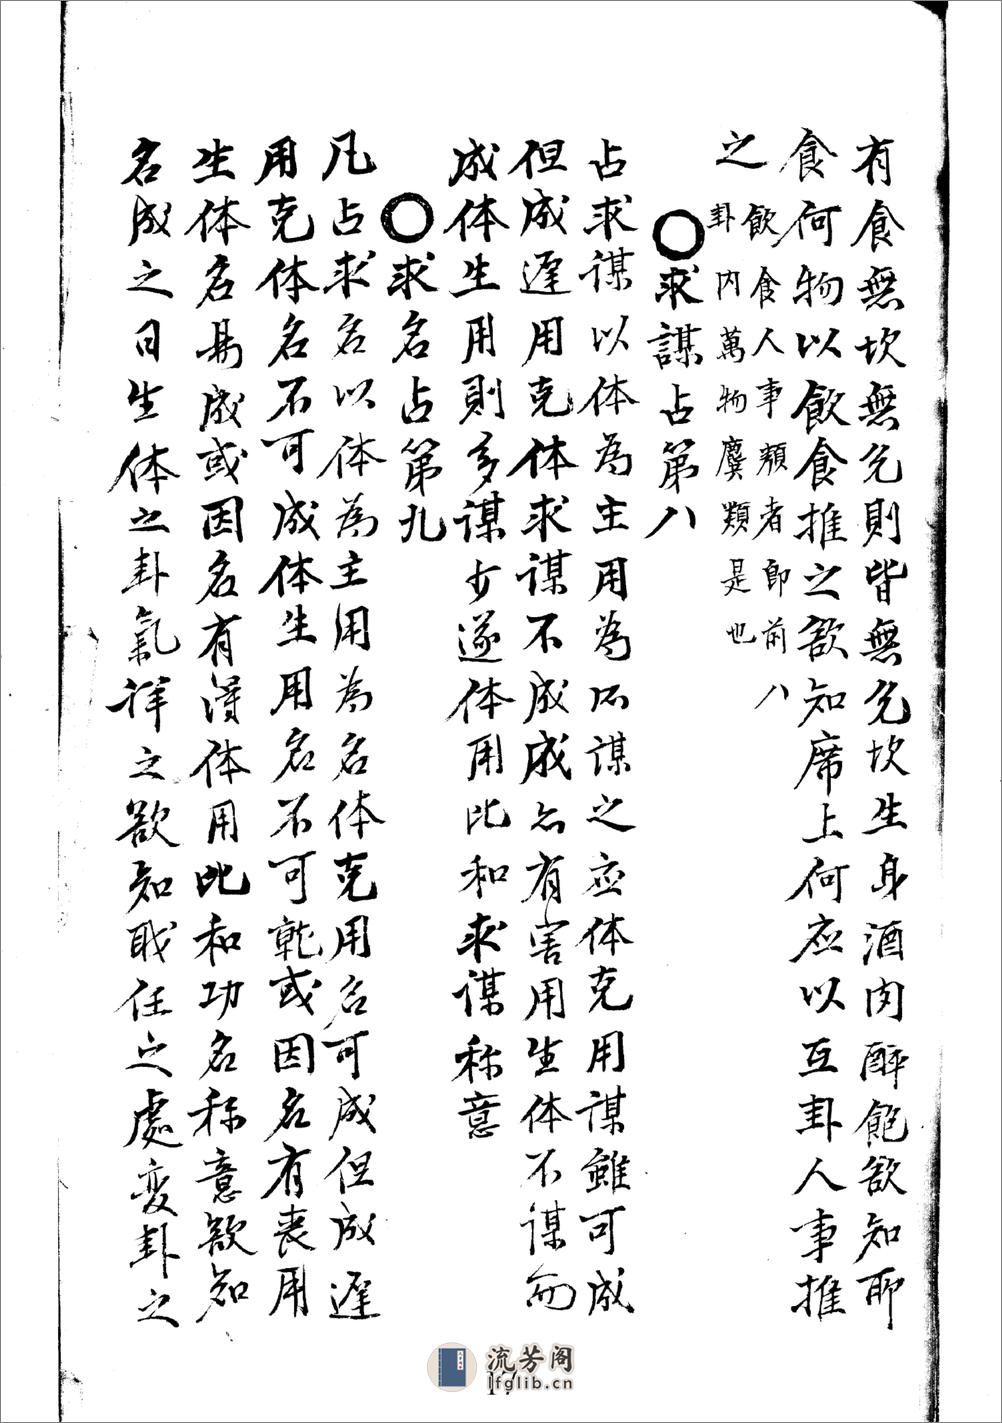 有食無坎無兌則皆無兌坎生身酒肉醉飽欲知所
食何物以飲食推之欲知席上何应以互卦人事推
之飲食人事類者即前八
卦内萬物屬類是也
○求謀占第八
占求謀以体為主用為所谋之应体克用谋雖可成
但成遲用克体求谋不成成亦有害用生体不谋而
成体生用則多谋少遂体用比和求谋称意
○求名占第九
凡占求名以体為主用為名体克用名可成但成遲
用克体名不可成体生用名不可就或因名有丧用
生体名易成或因名有得体用比和功名称意欲知
名成之日生体之卦氣详之欲知职任之處变卦之
流芳阁
lfglib.cn
17